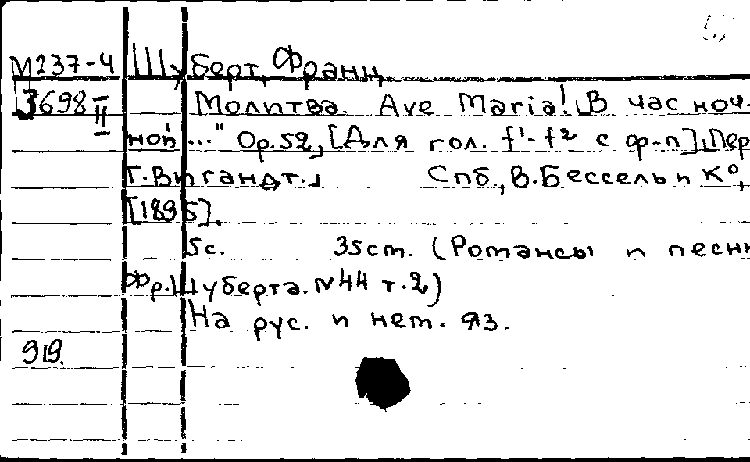 М237-4 Шуберт, Франц.
3698 II Молитва. Ave Maria! В час ноч-
ной..." Op.52, [Для гол. f¹-f² с ф-п]. Пер.
Г. Вигандт. Спб., В. Бессель и К°,
[1895].
5с. 35cm. (Романсы и песни
Фр. Шуберта. №44 т.2)
На рус. и нем. яз.
919.